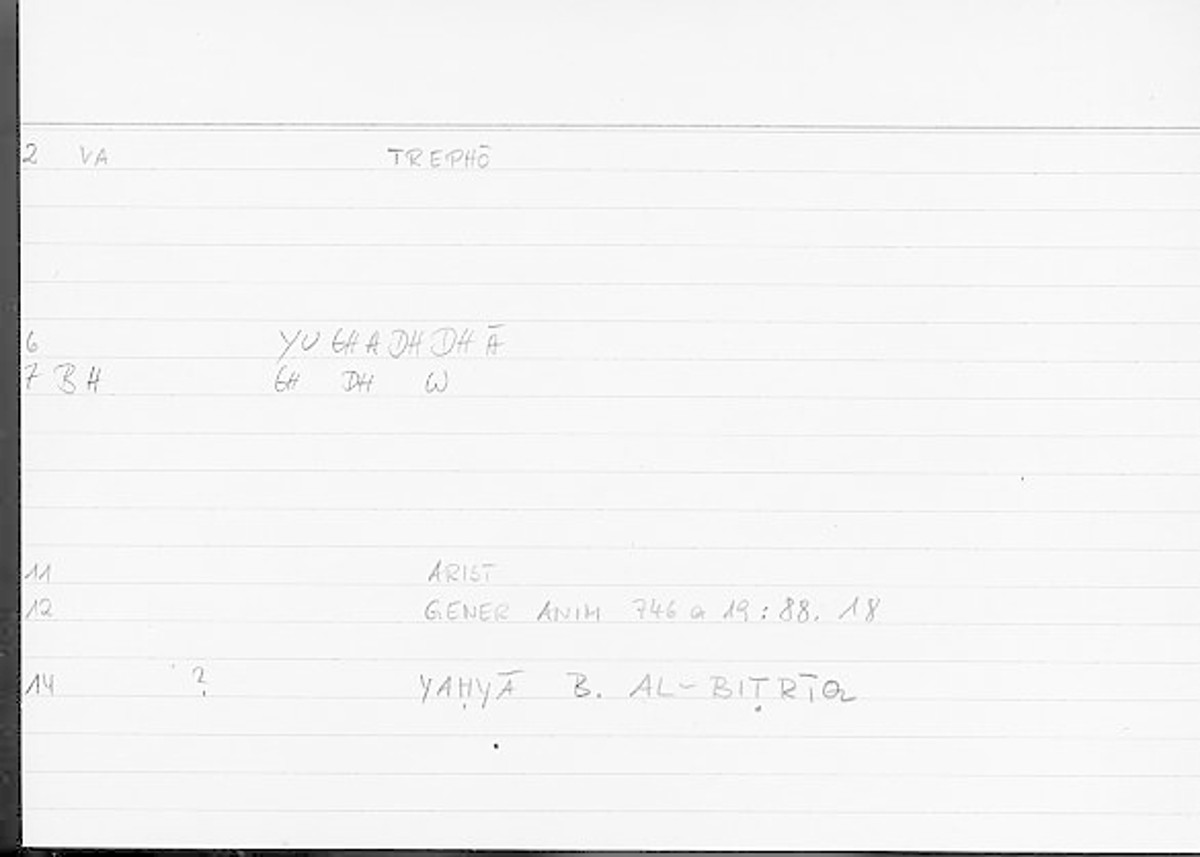 2 VA TREPHŌ
6 YUGHADHDHĀ
7 BH GH DH W
11 ARIST
12 GENER ANIM 746 a 19 : 88. 18
14 ? YAḤYĀ B. AL-BIṬRĪQ